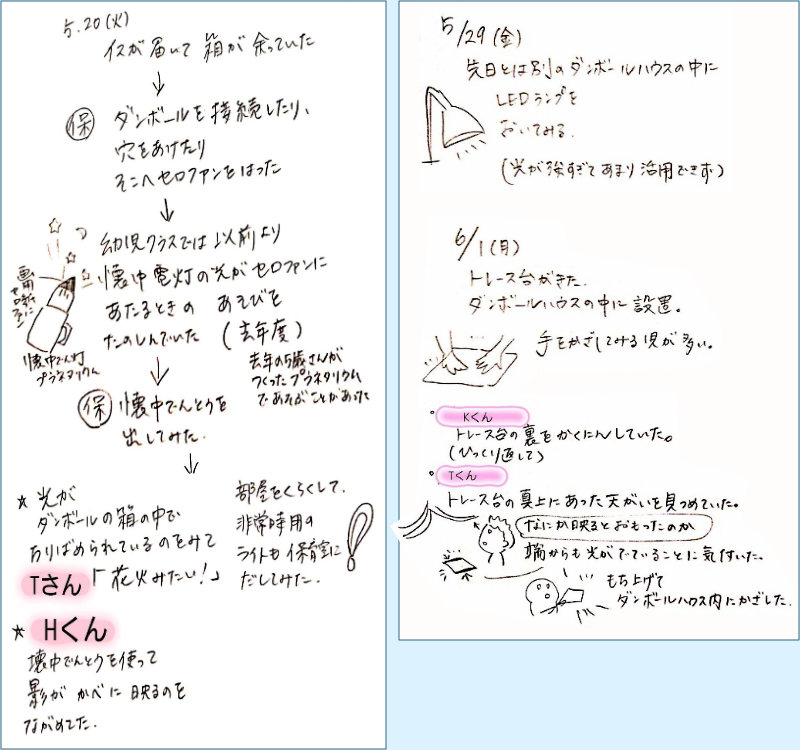 5.20(火)
イスが届いて 箱が 余っていた
↓
保 ダンボールを接続したり、
穴をあけたり
そこへセロファンをはった
↓
幼児クラスでは以前より
懐中電灯の光がセロファンに
あたるときの あそびを
たのしんでいた (去年度)
去年の5歳さんが
つくったプラネタリウム
であそぶことがあった
懐中でん灯
プラネタリウム
↓
保 懐中でんとうを
出してみた.
↓
★ 光が
ダンボールの箱の中で
ちりばめられているのをみて
Tさん「花火みたい!」
部屋をくらくして、
非常時用の
ライトも保育室に
だしてみた.
★ Hくん
懐中でんとうを使って
影が かべに 映るのを
ながめてた.
5/29(金)
先日とは別のダンボールハウスの中に
LEDランプを
おいてみる.
(光が強すぎてあまり活用できず)
6/1(月)
トレース台がきた.
ダンボールハウスの中に設置。
手をかざしてみる児が多い。
Kくん
トレース台の裏をかくにんしていた。
(ひっくり返して)
Tくん
トレース台の真上にあった天がいを見つめていた。
なにか映るとおもったのか
端からも光がでていることに気付いた。
もち上げて
ダンボールハウス内にかざした.